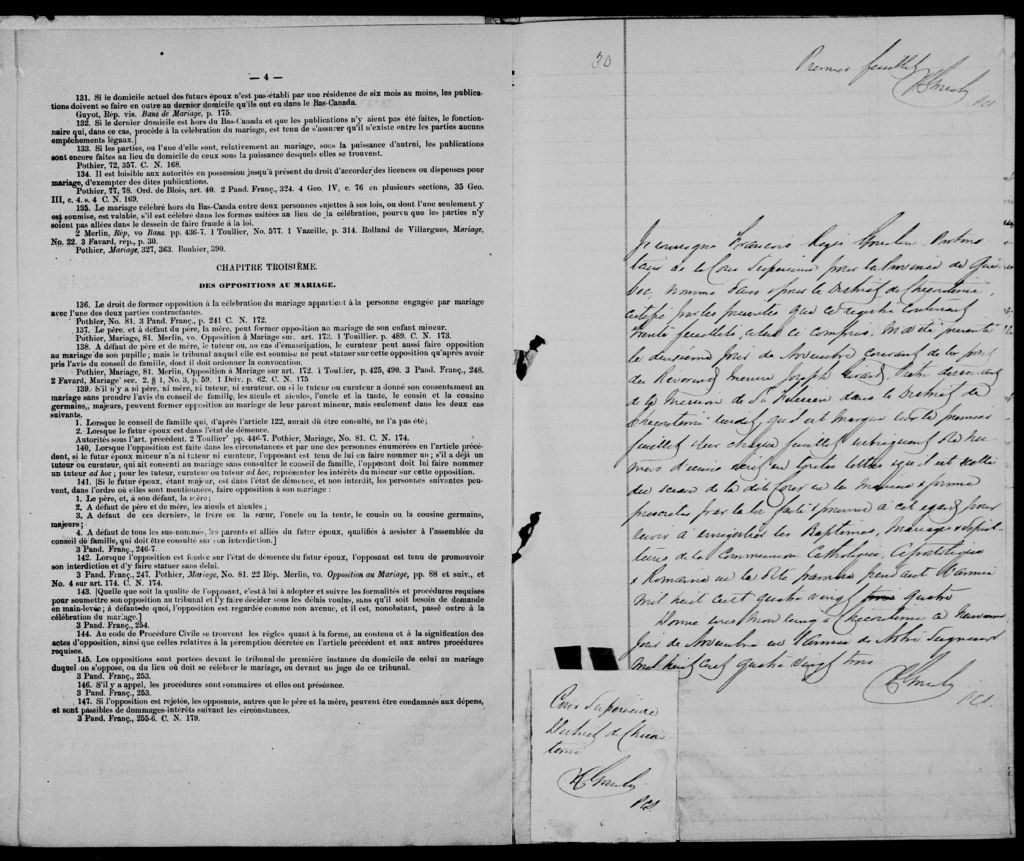 — 4 —
131. Si le domicile actuel des futurs époux n'est pas établi par une résidence de six mois au moins, les publica-
tions doivent se faire en outre au dernier domicile qu'ils ont eu dans le Bas-Canada.
Guyot, Rép. vis. Bans de Mariage, p. 175.
132. Si le dernier domicile est hors du Bas-Canada et que les publications n'y aient pas été faites, le fonction-
naire qui, dans ce cas, procède à la célébration du mariage, est tenu de s'assurer qu'il n'existe entre les parties aucuns
empêchements légaux.]
133. Si les parties, ou l'une d'elle sont, relativement au mariage, sous la puissance d'autrui, les publications
sont encore faites au lieu du domicile de ceux sous la puissance desquels elles se trouvent.
Pothier, 72, 357. C. N. 168.
134. Il est loisible aux autorités en possession jusqu'à présent du droit d'accorder des licences ou dispenses pour
mariage, d'exempter des dites publications.
Pothier, 77, 78. Ord. de Blois, art. 40. 2 Pand. Franç., 324. 4 Geo. IV, c. 76 en plusieurs sections, 35 Geo.
III, c. 4. s. 4 C. N. 169.
135. Le mariage célébré hors du Bas-Canda entre deux personnes sujettes à ses lois, ou dont l'une seulement y
est soumise, est valable, s'il est célébré dans les formes usitées au lieu de la célébration, pourvu que les parties n'y
soient pas allées dans le dessein de faire fraude à la loi.
2 Merlin, Rép, vo Bans. pp. 436-7. 1 Toullier, No. 577. 1 Vazeille, p. 314. Rolland de Villargues, Mariage,
No. 22. 3 Favard, rép., p. 30.
Pothier, Mariage, 327, 363. Bouhier, 390.
CHAPITRE TROISIÈME.
DES OPPOSITIONS AU MARIAGE.
136. Le droit de former opposition à la célébration du mariage appartient à la personne engagée par mariage
avec l'une des deux parties contractantes.
Pothier, No. 81. 3 Pand. Franç., p. 241 C. N. 172.
137. Le père, et à défaut du père, la mère, peut former opposition au mariage de son enfant mineur.
Pothier, Mariage, 81. Merlin, vo. Opposition à Mariage sur. art. 173. 1 Touillier. p. 489. C. N. 173.
138. A défaut de père et de mère, le tuteur ou, as cas d'émancipation, le curateur peut aussi faire opposition
au mariage de son pupille; mais le tribunal auquel elle est soumise ne peut statuer sur cette opposition qu'après avoir
pris l'avis du conseil de famille, dont il doit ordonner la convocation.
Pothier, Mariage, 81. Merlin, Opposition à Mariage sur art. 172. 1 Toullier, p. 425, 490. 3 Pand. Franç., 248.
2 Favard, Mariage sec. 2. § 1, No. 3, p. 59. 1 Delv. p. 62. C. N. 175
139. S'il n'y a ni père, ni mère, ni tuteur, ni curateur, ou si le tuteur ou curateur a donné son consentement au
mariage sans prendre l'avis du conseil de famille, les aïeuls et aïeules, l'oncle et la tante, le cousin et la cousine
germains, majeurs, peuvent former opposition au mariage de leur parent mineur, mais seulement dans les deux cas
suivants.
1. Lorsque le conseil de famille qui, d'après l'article 122, aurait dû être consulté, ne l'a pas été;
2. Lorsque le futur époux est dans l'état de démence.
Autorités sous l'art. précédent. 2 Toullier pp. 446-7. Pothier, Mariage, No. 81. C. N. 174.
140, Lorsque l'opposition est faite dans les circonstances et par une des personnes énumérées en l'article précé-
dent, si le futur époux mineur n'a ni tuteur ni curateur, l'opposant est tenu de lui en faire nommer un; s'il a déjà un
tuteur ou curateur, qui ait consenti au mariage sans consulter le conseil de famille, l'opposant doit lui faire nommer
un tuteur ad hoc; pour les tuteur, curateur ou tuteur ad hoc, représenter les intérêts du mineur sur cette opposition.
141. [Si le futur époux, étant majeur, est dans l'état de démence, et non interdit, les personnes suivantes peu-
vent, dans l'ordre où elles sont mentionnées, faire opposition à son mariage:
1. Le père, et, à son défaut, la mère;
2. A défaut de père et de mère, les aïeuls et aïeules;
3. A défaut de ces derniers, le frère ou la sœur, l'oncle ou la tante, le cousin ou la cousine germains,
majeurs;
4. A défaut de tous les sus-nommés, les parents et alliés du futur époux, qualifiés à assister à l'assemblée du
conseil de famille, qui doit être consulté sur son interdiction.]
3 Pand. Franç., 246-7.
142. Lorsque l'opposition est fondée sur l'état de démence du futur époux, l'opposant est tenu de promouvoir
son interdiction et d'y faire statuer sans délai.
3 Pand. Franç., 247. Pothier, Mariage, No. 81. 22 Rép. Merlin, vo. Opposition au Mariage, pp. 88 et suiv., et
No. 4 sur art. 174. C. N. 174.
143. [Quelle que soit la qualité de l'opposant, c'est à lui à adopter et suivre les formalités et procédures requises
pour soumettre son opposition au tribunal et l'y faire décider sous les délais voulus, sans qu'il soit besoin de demande
en main-levée; à défaut de quoi, l'opposition est regardée comme non avenue, et il est, nonobstant, passé outre à la
célébration du mariage.]
3 Pand. Franç., 254.
144. Au code de Procédure Civile se trouvent les règles quant à la forme, au contenu et à la signification des
actes d'opposition, ainsi que celles relatives à la péremption décrétée en l'article précédent et aux autres procédures
requises.
145. Les oppositions sont portées devant le tribunal de première instance du domicile de celui au mariage
duquel on s'oppose, ou du lieu où doit se célébrer le mariage, ou devant un juge de ce tribunal.
3 Pand. Franç., 253.
146. S'il y a appel, les procédures sont sommaires et elles ont préséance.
3 Pand. Franç., 253.
147. Si l'opposition est rejetée, les opposants, autres que le père et la mère, peuvent être condamnés aux dépens,
et sont passibles de dommages-intérêts suivant les circonstances.
3 Pand. Franç., 255-6. C. N. 179.
30
Premier feuillet
PCS
Je soussigné François Roger Proto-
taire de la Cour Supérieure pour la Province de Qué-
bec, nommé dans & pour le District de Chicoutimi,
certifie par les présentes que ce registre contenant
trente feuillets, a lui ce compris, m'a été présenté
le deuxième jour de Novembre courant de la part
du Révérend Messire Joseph Prêtre desservant
de la Mission de St. dans le District de
Chicoutimi qu'il est marqué sur le premier
feuillet & sur chaque feuillet subséquent du nu-
méro d'icelui écrit en toutes lettres & qu'il est scellé
du sceau de la dite Cour en la manière & forme
prescrites par la loi faite & pourvue à cet égard pour
servir à enregistrer les Baptêmes, Mariages & Sépul-
tures de la Communion Catholique, Apostolique
& Romaine en la dite paroisse pendant l'année
mil huit cent quatre vingt quatre
Donné sous mon seing à Chicoutimi ce neuvième
jour de Novembre en l'année de Notre Seigneur
mil huit cent quatre vingt trois
PCS.
Cour Supérieure
District de Chicou-
timi
PCS.